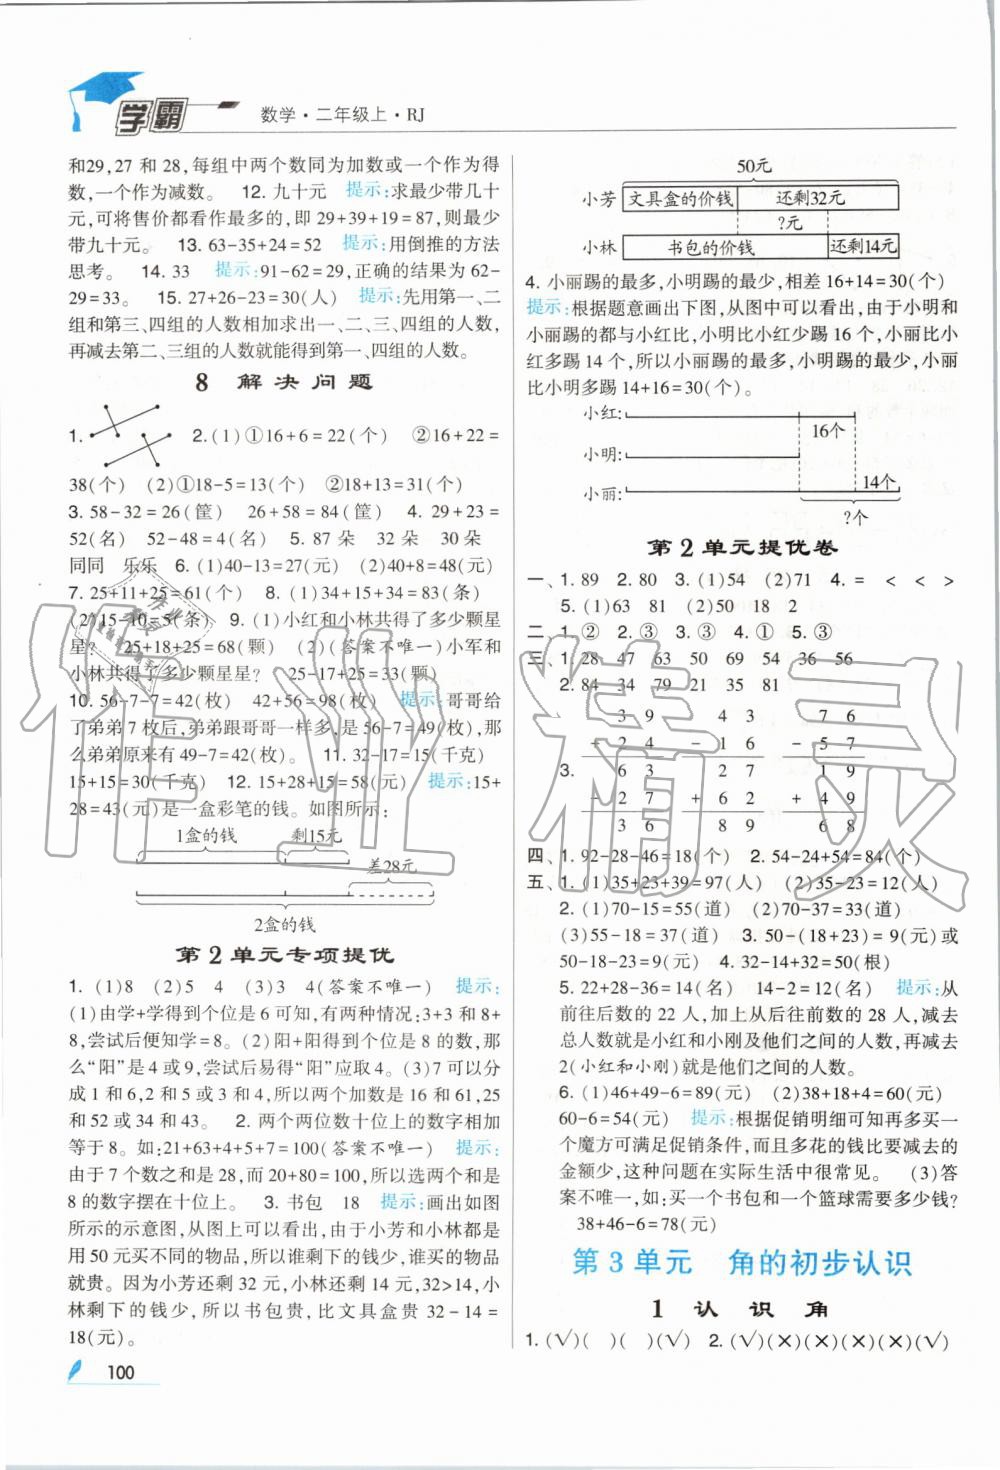 学霸
数学·二年级上·RJ
和29,27 和 28,每组中两个数同为加数或一个作为得
数,一个作为减数。 12. 九十元 提示:求最少带几十
元,可将售价都看作最多的,即 29+39+19=87,则最少
带九十元。 13. 63-35+24=52 提示:用倒推的方法
思考。 14. 33 提示:91-62=29,正确的结果为 62-
29=33。 15. 27+26-23=30(人) 提示:先用第一、二
组和第三、四组的人数相加求出一、二、三、四组的人数,
再减去第二、三组的人数就能得到第一、四组的人数。
8 解决问题
1. 2. (1)①16+6=22(个) ②16+22=
38(个) (2)①18-5=13(个) ②18+13=31(个)
3. 58-32=26(筐) 26+58=84(筐) 4. 29+23=
52(名) 52-48=4(名) 5. 87 朵 32 朵 30 朵
同同 乐乐 6. (1)40-13=27(元) (2)40+8=48(元)
7. 25+11+25=61(个) 8. (1)34+15+34=83(条)
(2)15-10=5(条) 9. (1)小红和小林共得了多少颗星
星? 25+18+25=68(颗) (2)(答案不唯一)小军和
小林共得了多少颗星星? 25-17+25=33(颗)
10. 56-7-7=42(枚) 42+56=98(枚) 提示:哥哥给
了弟弟 7 枚后,弟弟跟哥哥一样多,是 56-7=49(枚),那
么弟弟原来有 49-7=42(枚)。 11. 32-17=15(千克)
15+15=30(千克) 12. 15+28+15=58(元) 提示:15+
28=43(元)是一盒彩笔的钱。如图所示:
1盒的钱 剩15元
差28元
2盒的钱
第2单元专项提优
1. (1)8 (2)5 4 (3)3 4(答案不唯一) 提示:
(1)由学+学得到个位是 6 可知,有两种情况:3+3 和 8+
8,尝试后便知学=8。(2)阳+阳得到个位是 8 的数,那
么“阳”是 4 或 9,尝试后易得“阳”应取 4。(3)7 可以分
成 1 和 6,2 和 5,3 和 4,所以六个数是 16 和 61,25
和 52 或 34 和 43。 2. 两个两位数十位上的数字相加
等于 8。如:21+63+4+5+7=100(答案不唯一) 提示:
由于 7 个数之和是 28,而 20+80=100,所以选两个和是
8 的数字摆在十位上。 3. 书包 18 提示:画出如图
所示的示意图,从图上可以看出,由于小芳和小林都是
用 50 元买不同的物品,所以谁剩下的钱少,谁买的物品
就贵。因为小芳还剩 32 元,小林还剩 14元,32>14,小
林剩下的钱少,所以书包贵,比文具盒贵 32-14=
18(元)。
100
50元
小芳 文具盒的价钱 还剩32元
?元
小林 书包的价钱 还剩14元
4. 小丽踢的最多,小明踢的最少,相差 16+14=30(个)
提示:根据题意画出下图,从图中可以看出,由于小明和
小丽踢的都与小红比,小明比小红少踢 16 个,小丽比小
红多踢 14 个,所以小丽踢的最多,小明踢的最少,小丽
比小明多踢 14+16=30(个)。
小红:
16个
小明:
14个
小丽:
?个
第2单元提优卷
一、1. 89 2. 80 3. (1)54 (2)71 4. = < < >
5. (1)63 81 (2)50 18 2
二、1. ② 2. ③ 3. ③ 4. ① 5. ③
三、1. 28 47 63 50 69 54 36 56
2. 84 34 79 21 35 81
3 9 4 3 7 6
+ 2 4 - 1 6 - 5 7
3. 6 3 2 7 1 9
- 2 7 + 6 2 + 4 9
3 6 8 9 6 8
四、1. 92-28-46=18(个) 2. 54-24+54=84(个)
五、1. (1)35+23+39=97(人) (2)35-23=12(人)
2. (1)70-15=55(道) (2)70-37=33(道)
(3)55-18=37(道) 3. 50-(18+23)=9(元)或
50-18-23=9(元) 4. 32-14+32=50(根)
5. 22+28-36=14(名) 14-2=12(名) 提示:从
前往后数的 22 人,加上从后往前数的 28 人,减去
总人数就是小红和小刚及他们之间的人数,再减去
2(小红和小刚)就是他们之间的人数。
6. (1)46+49-6=89(元) (2)38+18+4=60(元)
60-6=54(元) 提示:根据促销明细可知再多买一
个魔方可满足促销条件,而且多花的钱比要减去的
金额少,这种问题在实际生活中很常见。 (3)答
案不唯一,如:买一个书包和一个篮球需要多少钱?
38+46-6=78(元)
第3单元 角的初步认识
1 认识角
1. (√)( )( )(√) 2. (√)(×)(×)(×)(×)(√)
作业精灵